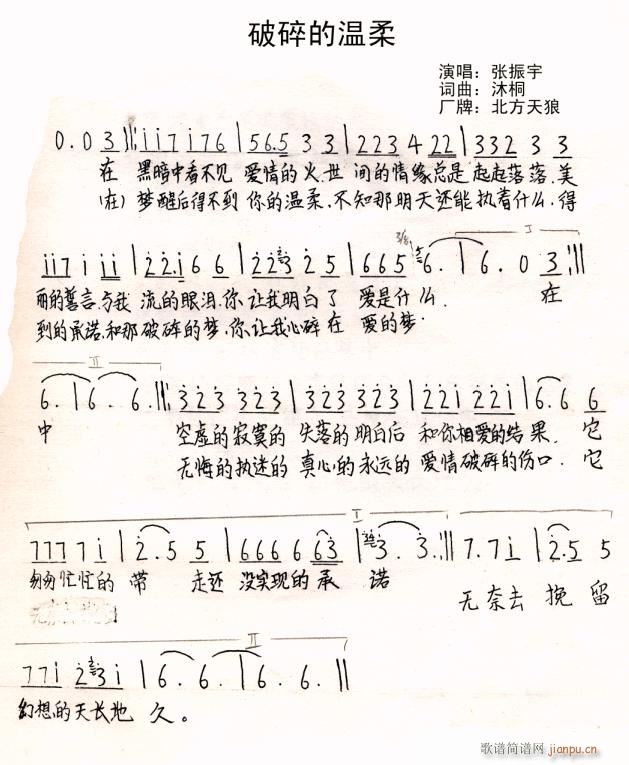 破碎的温柔
演唱：张振宇
词曲：沐桐
厂牌：北方天狼
0.03 i i 7 i 7 6 | 5 6.5 3 3 | 2 2 3 4 2 2 | 3 3 2 3 3
在 黑暗中看不见 爱情的火.世 间的情缘总是 起起落落.美
(在) 梦醒后得不到 你的温柔.不知那明天还能 执着什么.得
i i 7 i i i | 2 2. i 6 6 | 2 2 3 2 5 | 6 6 5 6. | 6. 0 3
丽的誓言.与我 流的眼泪.你.让我明白了 爱是什么. 在
到的承诺.和那破碎的梦.你.让我心碎在 爱的梦.
II
6. | 6. 6. 3 2 3 3 2 3 | 3 2 3 3 2 3 | 2 2 i 2 2 i | 6. 6 6
中 空虚的寂寞的 失落的明白后 和你相爱的结果. 它
无悔的执迷的 真心的永远的 爱情破碎的伤口. 它
I
7 7 7 7 i | 2. 5 5 | 6 6 6 6 6 3 | 3. 3. 7. 7 i | 2. 5 5
匆匆忙忙的 带 走还 没实现的承 诺
无奈去 挽 留
II
7 7 i 2 3 i | 6. 6. | 6. 6.
幻想的天长地 久。
歌谱简谱网 jianpu.cn